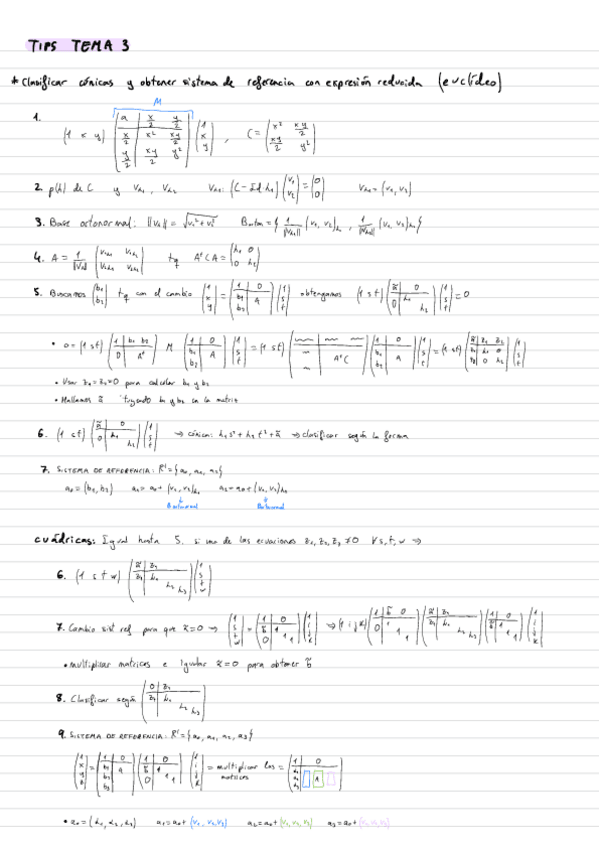 TIPS TEMA 3
* Clasificar cónicas y obtener sistema de referencia con expresión reducida (euclídeo)
M
1. (1 x y) (a x/2 y/2 | x/2 x² xy/2 | y/2 xy/2 y²) (1 x y), C = (x² xy/2 | xy/2 y²)
2. p(λ) de C y Vλ₁, Vλ₂ Vλ₁: (C - Id·λ₁) (v₁ v₂) = (0 0) Vλ₁ = (v₁, v₂)
3. Base octonormal: ||Vλ|| = √v₁² + v₂² Borton = { 1/||Vλ₁|| (v₁, v₂)λ₁, 1/||Vλ₂|| (v₁, v₂)λ₂ }
4. A = 1/||Vλ|| (v₁λ₁ v₁λ₂ | v₂λ₁ v₂λ₂) tq AᵗCA = (λ₁ 0 | 0 λ₂)
5. Buscamos (b₁ b₂) tq con el cambio (1 x y) = (1 0 | b₁ b₂ A) (1 s t) obtengamos (1 s t) (ã | 0 λ₁ λ₂) (1 s t) = 0
• 0 = (1 s t) (1 b₁ b₂ | 0 Aᵗ) M (1 0 | b₁ b₂ A) (1 s t) = (1 s t) ( AᵗC ) (1 0 | b₁ b₂ A) (1 s t) = (1 s t) (ã z₁ z₂ | z₁ λ₁ 0 | z₂ 0 λ₂) (1 s t)
• Usar z₁ = z₂ = 0 para calcular b₁ y b₂
• Hallamos ã b₁ y b₂ en la matriz
6. (1 s t) (ã | 0 λ₁ λ₂) (1 s t) → cónica: λ₁s² + λ₂t² + ã → clasificar según la forma
7. SISTEMA DE REFERENCIA: R' = {a₀, a₁, a₂}
a₀ = (b₁, b₂) a₁ = a₀ + (v₁, v₂)λ₁ a₂ = a₀ + (v₁, v₂)λ₂
Bortonormal Bortonormal
cuádricas: Igual hasta 5. si una de las ecuaciones z₁, z₂, z₃ ≠ 0 ∀ s, t, w ⇒
6. (1 s t w) (ã z₁ | z₁ λ₁ λ₂ λ₃) (1 s t w)
7. Cambio sist ref para que ã = 0 → (1 s t w) = (1 0 | b̃ 0 1 1 1) (1 i j k) → (1 i j k) (1 b̃ 0 | 0 1 1 1) (ã z₁ | z₁ λ₁ λ₂ λ₃) (1 0 | b̃ 0 1 1 1) (1 i j k)
• multiplicar matrices e igualar ã = 0 para obtener b̃
8. Clasificar según (0 z₁ | z₁ λ₁ λ₂ λ₃)
9. SISTEMA DE REFERENCIA: R' = {a₀, a₁, a₂, a₃}
(1 x y z) = (1 0 | b₁ b₂ b₃ A) (1 0 | b̃ 0 1 1 1) (1 i j k) = multiplicar las matrices = (1 0 | A)
• a₀ = (α₁, α₂, α₃) a₁ = a₀ + (v₁, v₂, v₃) a₂ = a₀ + (v₁, v₂, v₃) a₃ = a₀ + (v₁, v₂, v₃)